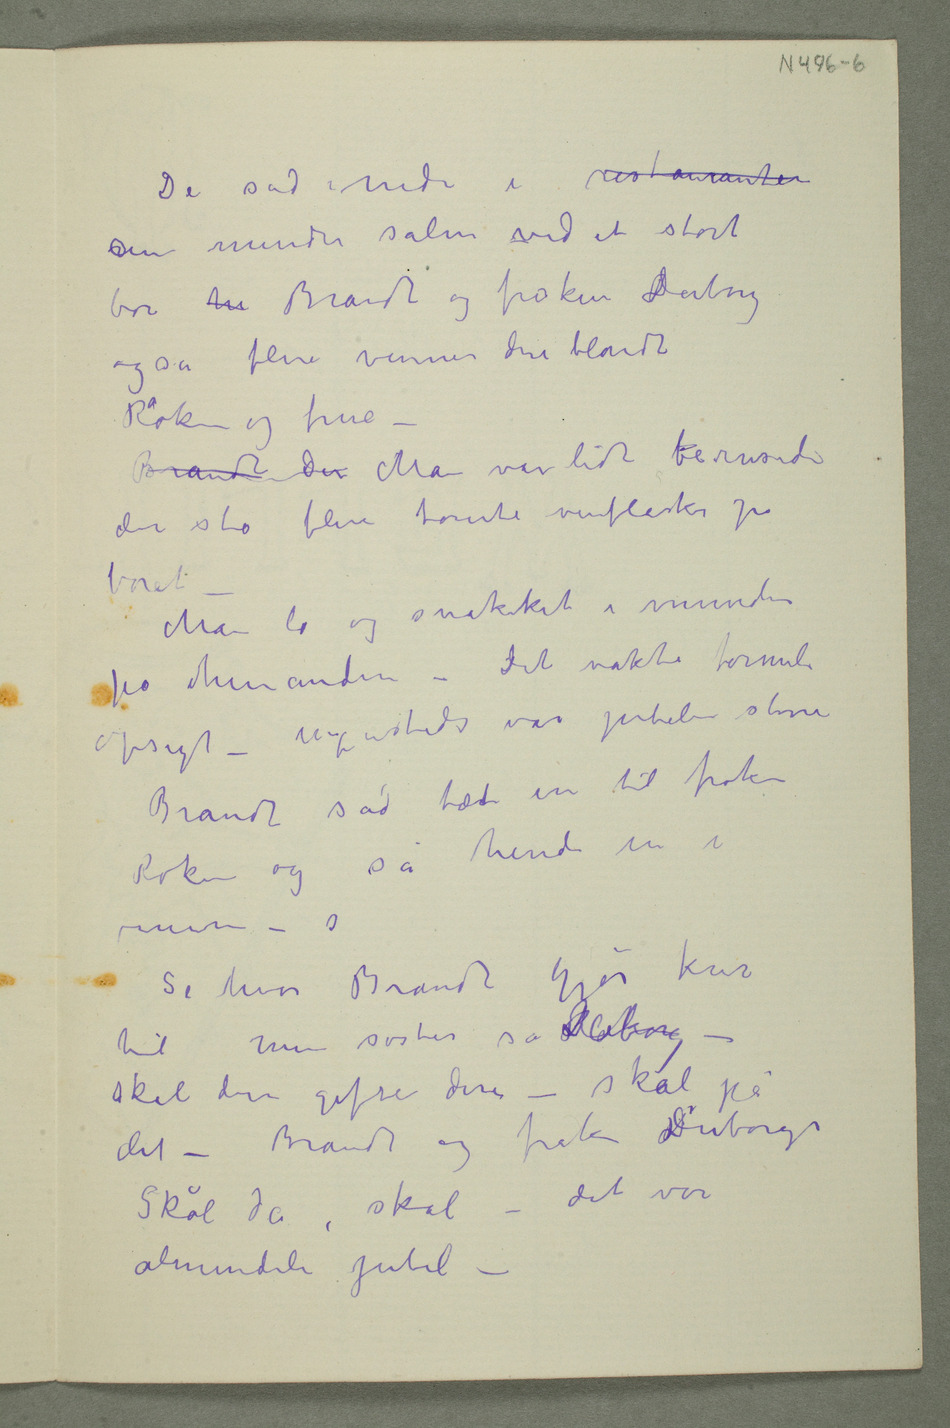 N496-6
De sad nede i restauranten
den mindre salen ved et stort
bor Brandt og frøken Duborg
også flere venner der iblandt
Roken og frue –
Brandt Der Man var lidt beruset
der sto flere tomte vinflasker på
boret –
Man lo og snakket i munden
på hinanden – Det vakte formeli
opsigt – var jubelen større
Brandt sad tæt in til frøken
Roken og så hende in i
–
Se hvor Brandt gjør kur
til min søster sa Duborg –
skal dere gifte dere – skål på
det – Brandt og frøken Duborgs
Skål da, skål – det var
almindeli jubel –